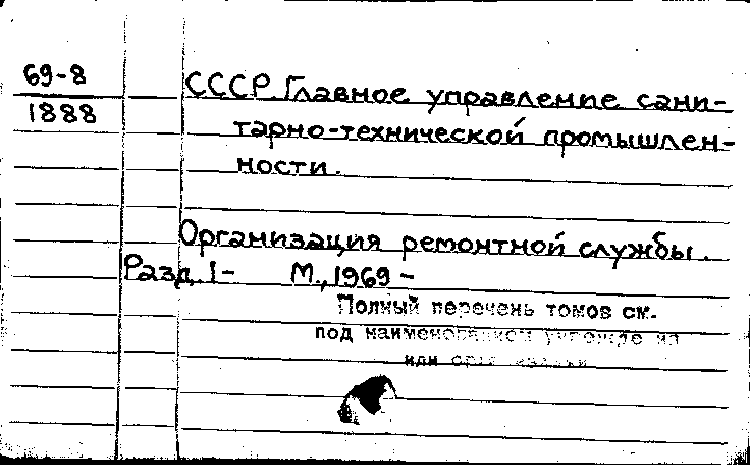 69-8
1888
СССР Главное управление сани-
тарно-технической промышлен-
ности.
Организация ремонтной службы.
Разд. I- М., 1969 -
Полный перечень томов см.
под наименованием
или